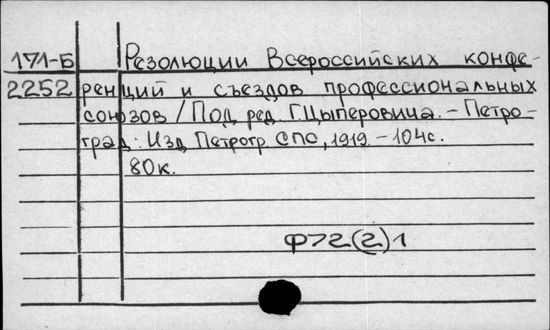 171-Б Резолюции Всероссийских конфе-
2252 ренций и съездов профессиональных
союзов / Под ред. Г.Цыперовича. – Петро-
град: Изд. Петрогр. СПС, 1919. – 104с.
80к.
Ф72(2)1